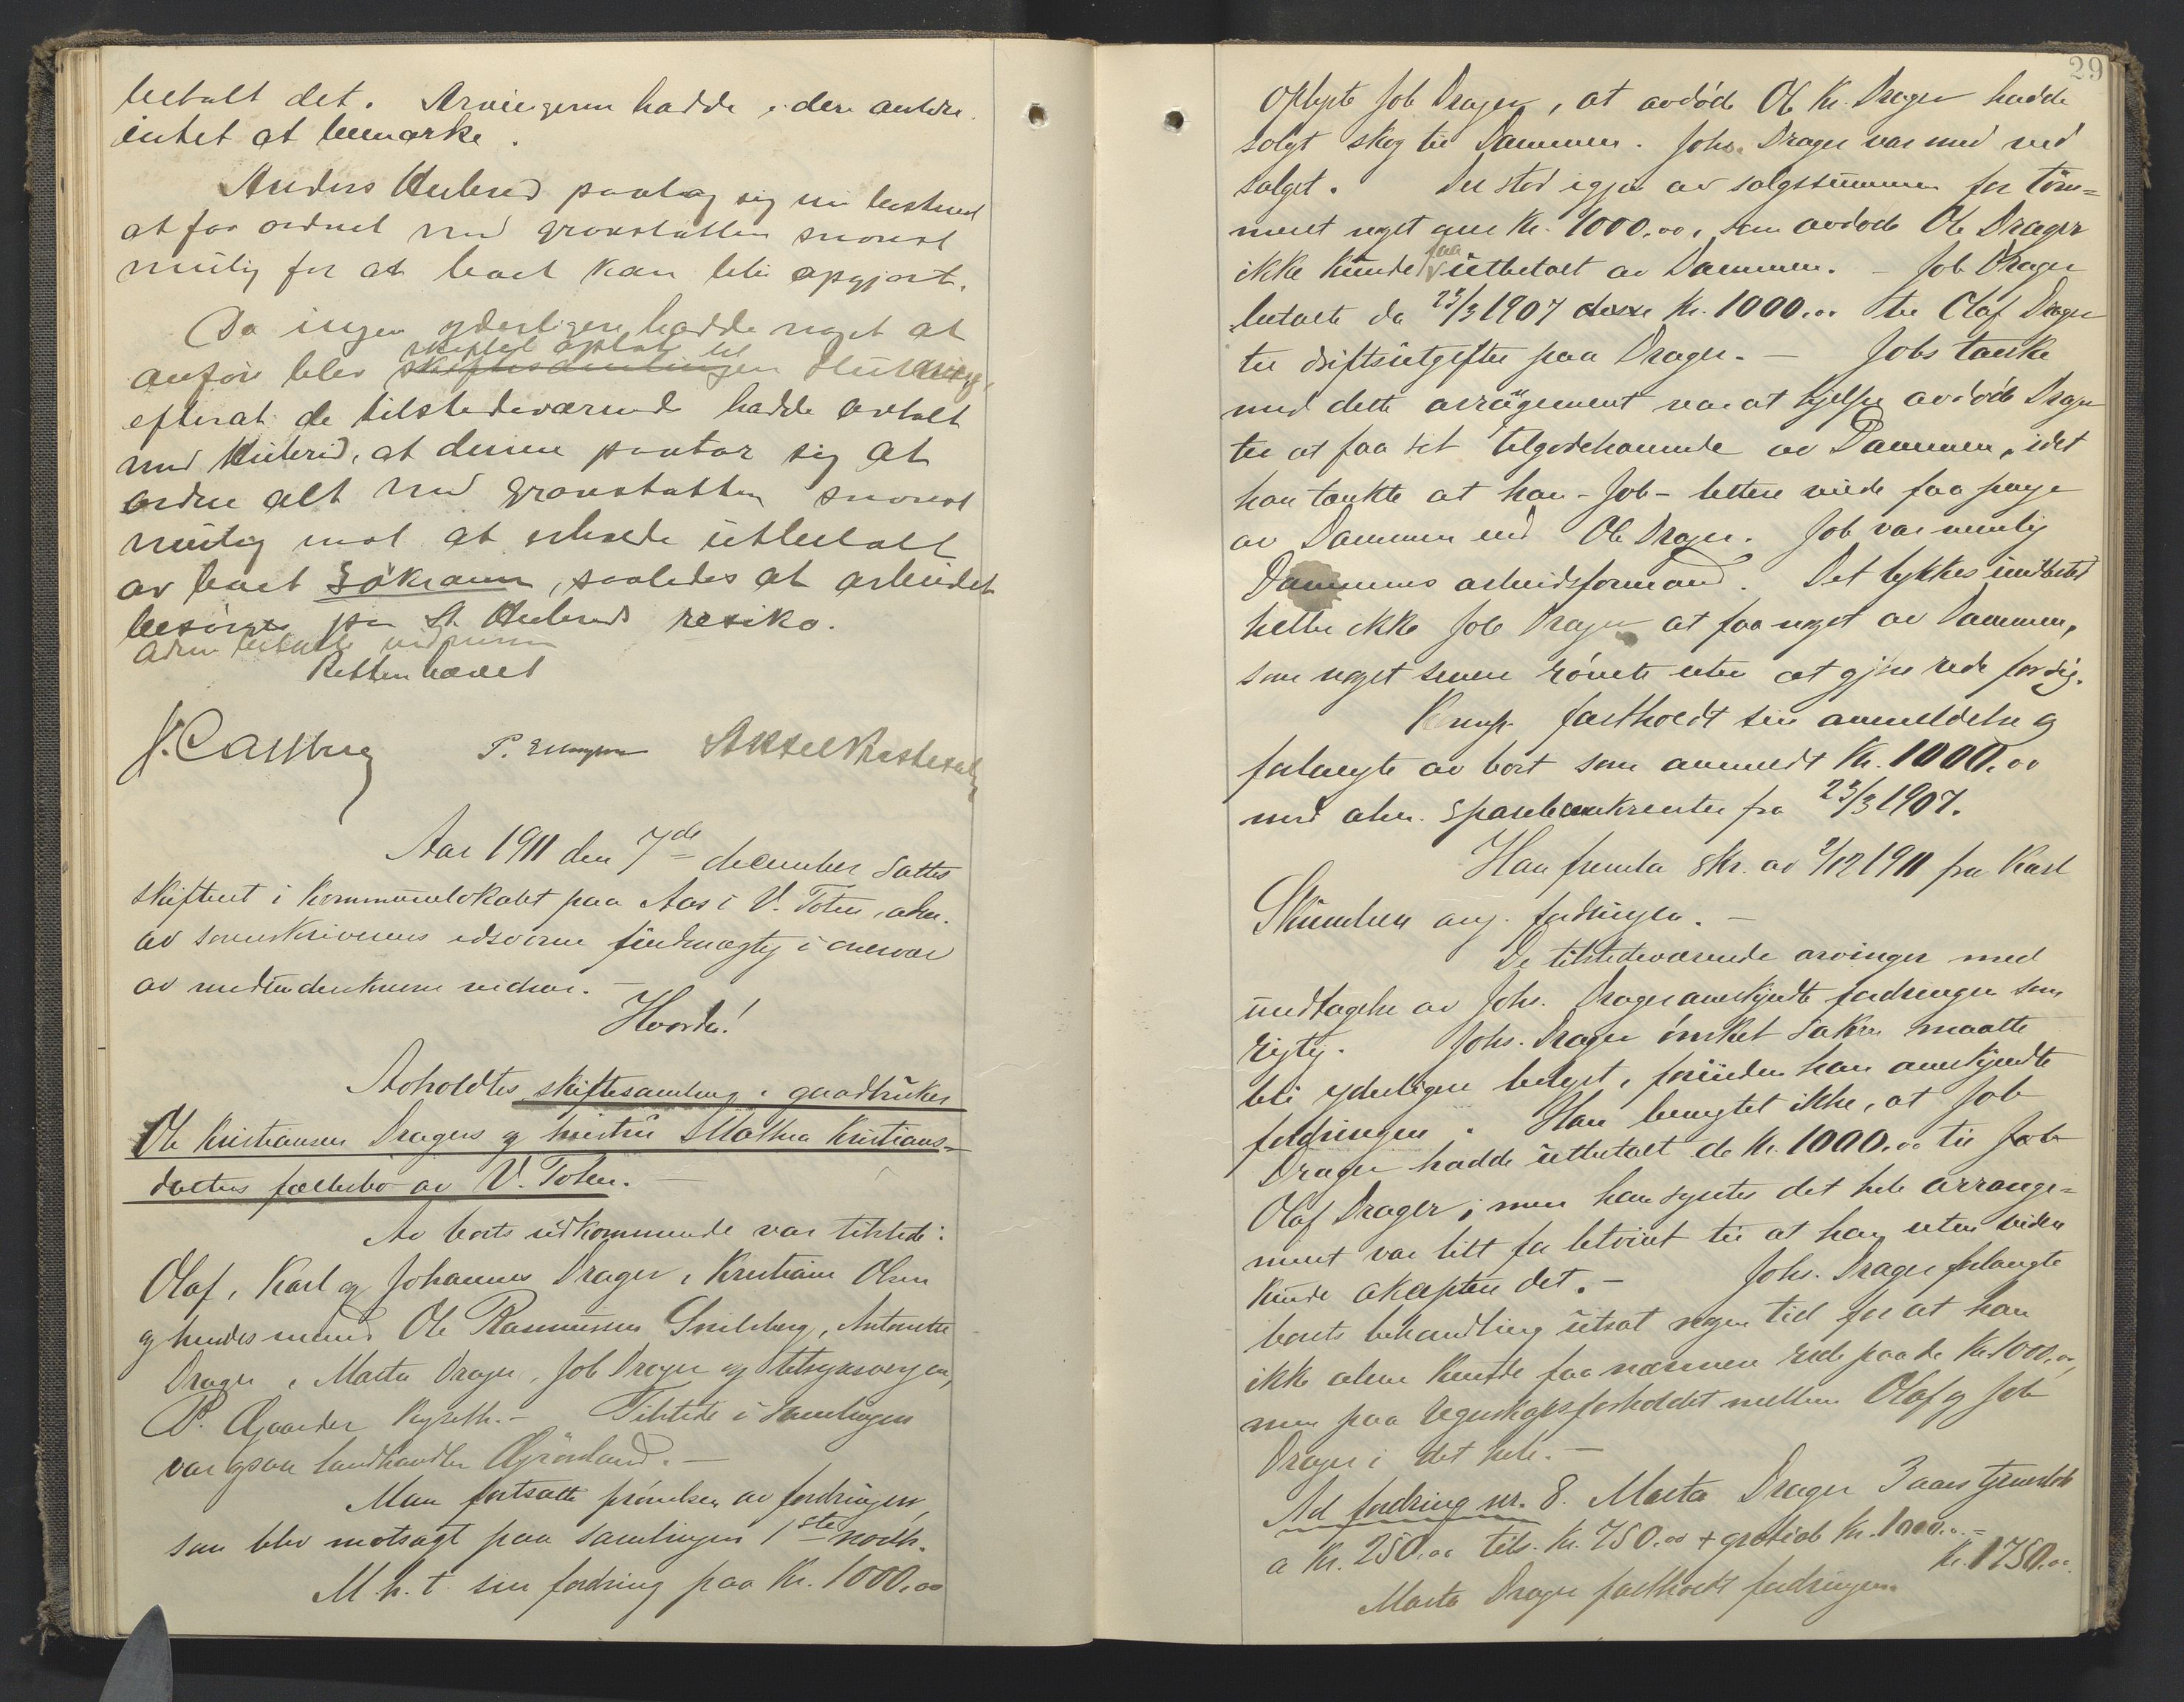 betalt det. Arvingerne hadde
intet at bemærke.
Anders paatog sig
at faa ordnet med gravstøtten snarest
mulig for at boet kan bli opgjort.
Da ingen yderligere hadde noget at
anføre blev skiftet
efterat de tilstedeværende hadde avtalt
med at denne paatar sig at
ordne alt med gravstøtten snarest
mulig mot at erholde utbetalt
av boet kr, saaledes at arbeidet
besørges paa resiko.
Retten hævet
Aar 1911 den 7de december sattes
skifteret i kommunelokalet paa Aas i V. Toten, adm.
av sorenskriverens edsvorne fuldmægtig i overvær
av medundertegnede vidner. –
Hvorda!
Avholdtes skiftesamling i gaardbruker
Ole Kristiansen Dragers og hustru Mathea Kristians-
datters fællesbo av V. Toten. –
Av boets vedkommende var tilstede:
Olaf, Karl og Johannes Drager, Kristiane Olsen
og hendes mand Ole Rasmussen Snilsberg, Antonette
Drager, Marta Drager, Job Drager og tilsynsvergen,
P. Gaarder – Tilstede i samlingen
var ogsaa landhandler Grønland. –
Man fortsatte prøvelsen av fordringen,
som blev motsagt paa samlingen 1ste
M. h. t. sin fordring paa Kr. 1000.00
29
oplyste Job Drager, at avdøde Ole Kr. Drager hadde
solgt skog til Dammen. Johs. Drager var med ved
salget. Der stod igjen av salgssummen for tøm-
meret noget over Kr. 1000.00, som avdøde Ole Drager
ikke kunde faa utbetalt av Dammen. – Job Drager
betalte da 23/3 1907 disse kr. 1000.00 til Olaf Drager
til driftsutgifter paa Drager. – Jobs tanke
med dette arrangement var at hjelpe avdøde Drager
til at faa sit tilgodehavende av Dammen, idet
han tænkte at han – Job – lettere vilde faa penge
av Dammen end Ole Drager. Job var nemlig
Dammens arbeidsformand. Det lykkes imidlertid
heller ikke Job Drager at faa noget av Dammen,
som noget senere rømte uten at gjøre rede for sig.
fastholdt sin anmeldelse og
forlangte av boet som anmeldt Kr. 1000.00
med alm. sparebankrenter fra 23/3 1907.
Han fremla skr. av 2/12 1911 fra Karl
ang. fordringen. –
De tilstedeværende arvinger med
undtagelse av Johs. Drager anerkjendte fordringen som
rigtig. Johs. Drager ønsket saken maatte
bli yderligere belyst, forinden han anerkjendte
fordringen. Han benegtet ikke, at Job
Drager hadde utbetalt de kr. 1000.00 til Job
Olaf Drager; men han syntes det hele arrange-
ment var litt for letvint til at han uten videre
kunde akceptere det. – Johs. Drager forlangte
boets behandling utsat nogen tid for at han
ikke alene kunde faa nærmere rede paa de Kr. 1000.00,
men paa regnskapsforholdet mellem Olaf og Job
Drager i det hele. –
Ad fordring nr. 8. Marta Drager 3 aars tjenesteløn
a Kr. 250.00 tils. Kr. 750.00 + gratiale Kr. 1000.00 =
Kr. 1750.00.
Marta Drager fastholdt fordringen.